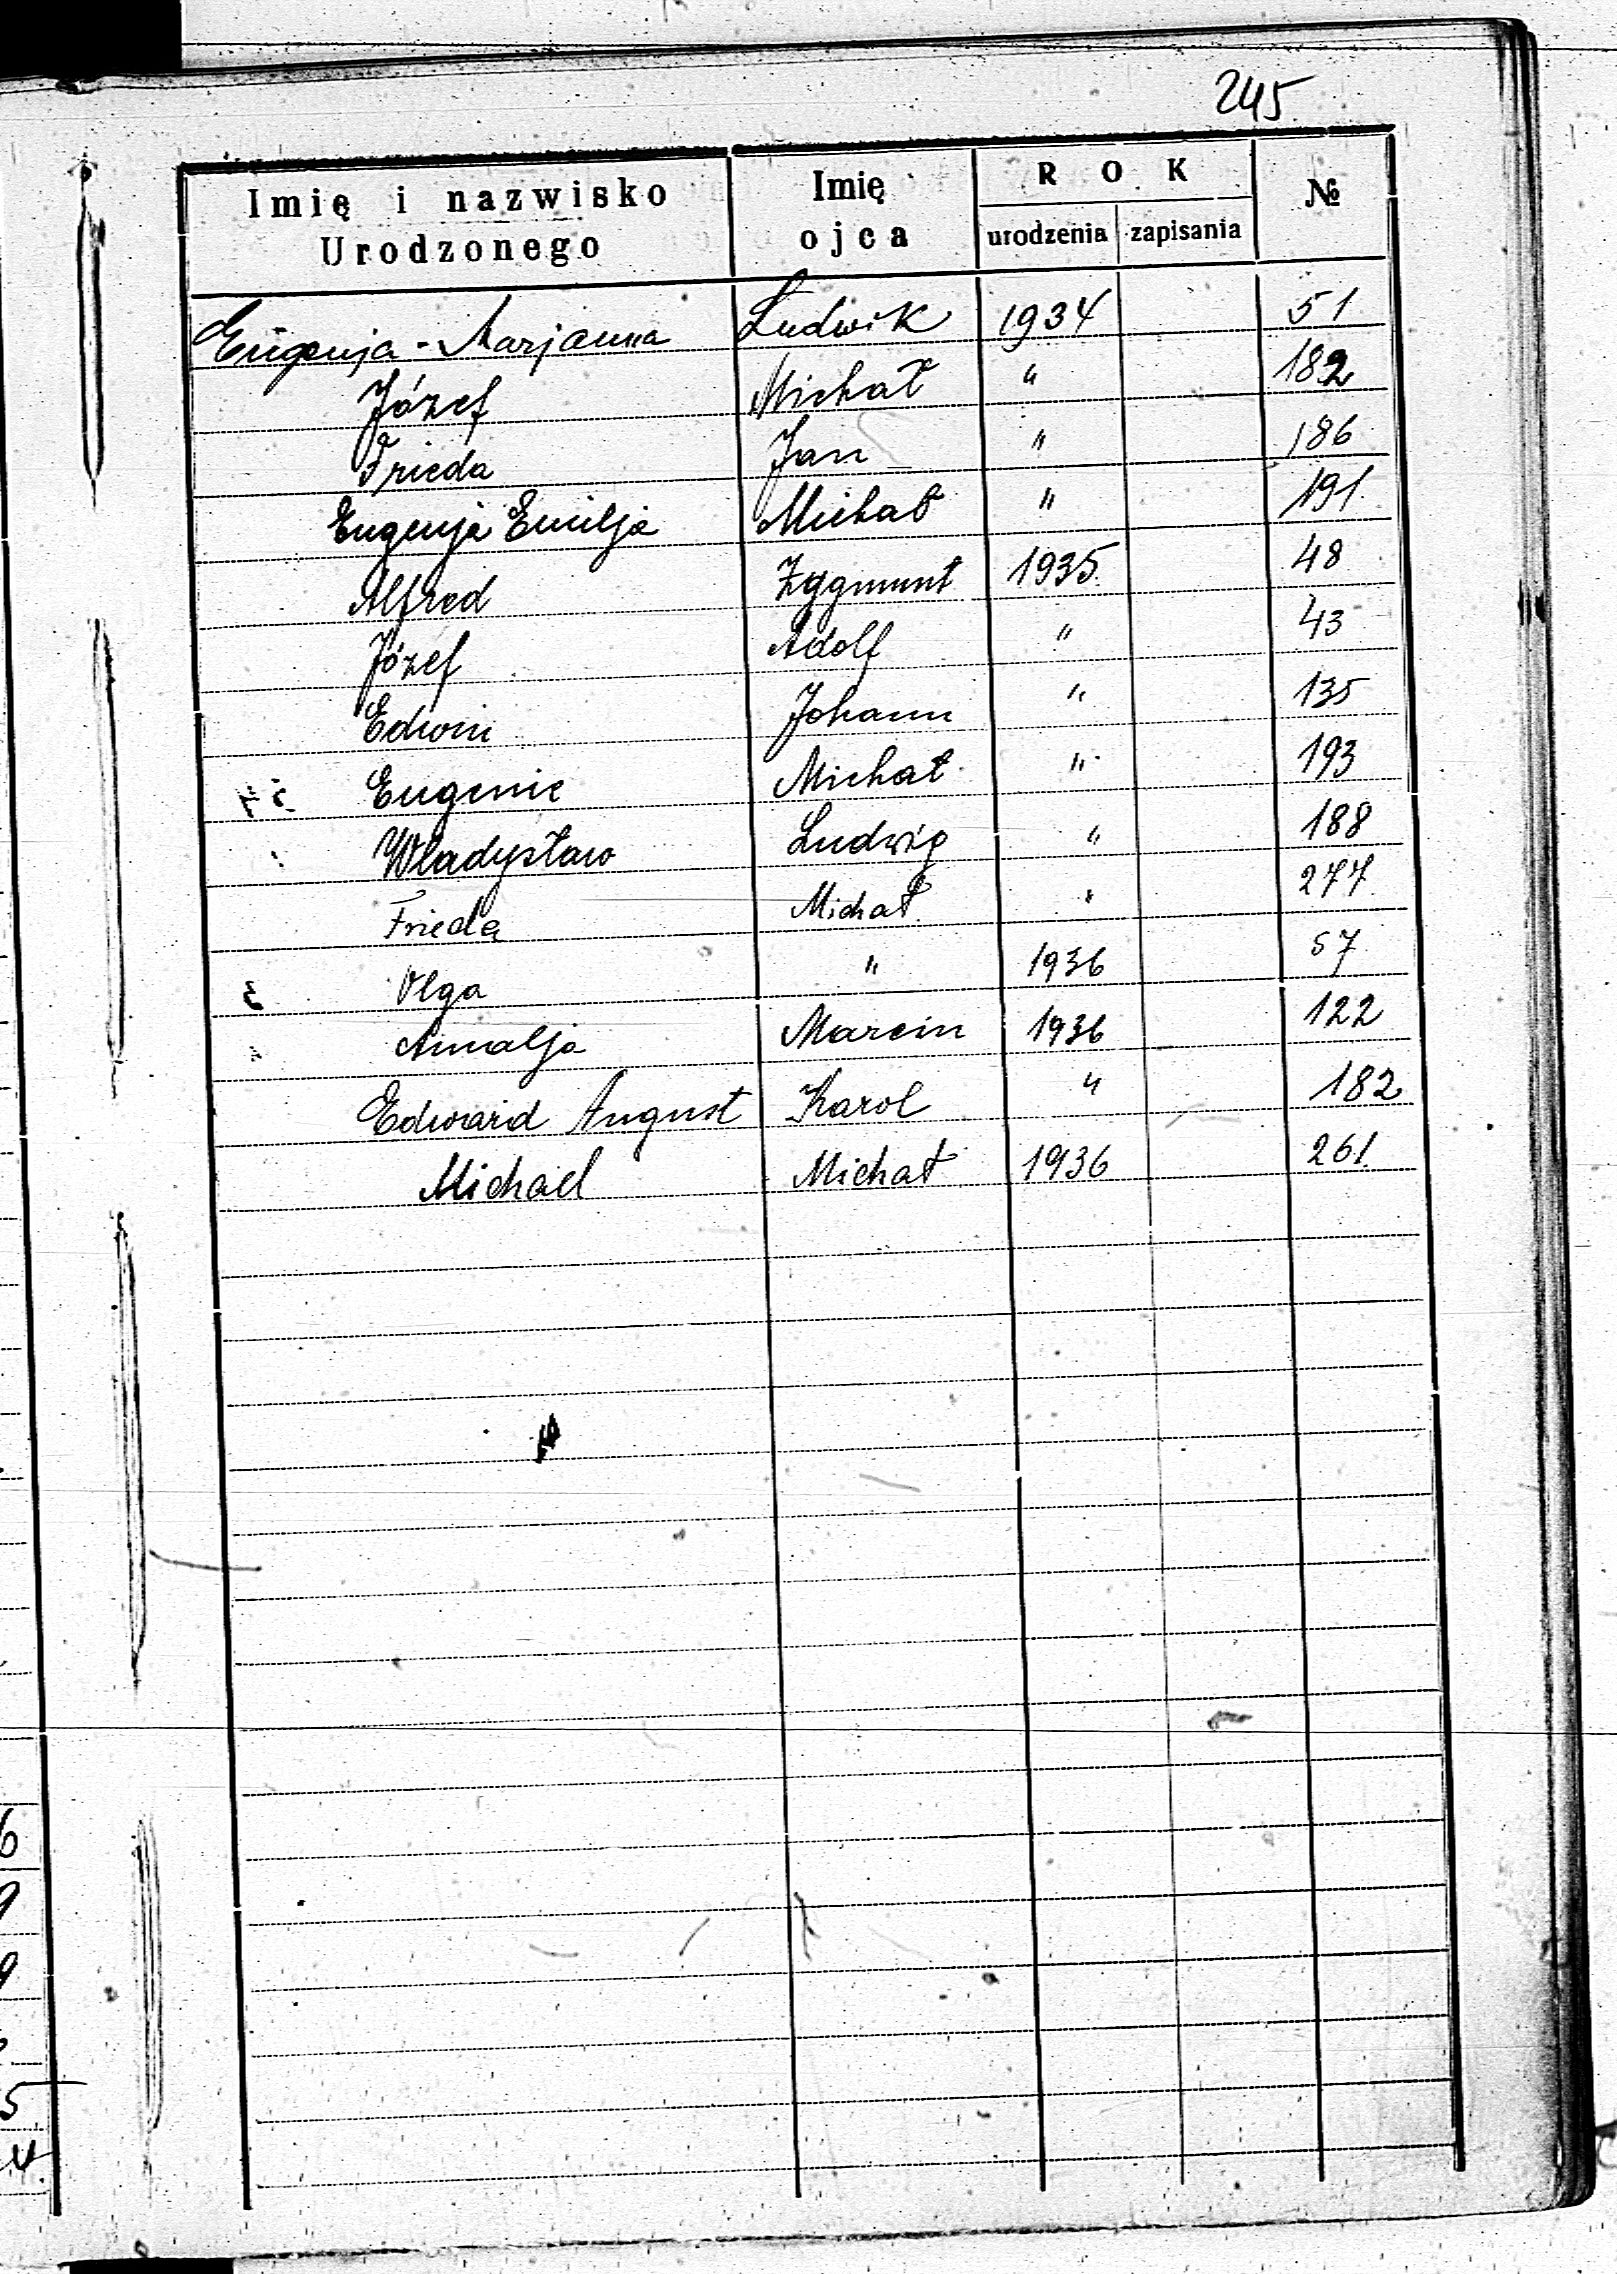 245
Imię i nazwisko Urodzonego Imię ojca ROK urodzenia zapisania №
Eugenja - Marjanna Ludwik 1934 51
Józef Michał " 182
Frieda Jan " 186
Eugenja Emilja Michał " 191
Alfred Zygmunt 1935 48
Józef Adolf " 43
Edwin Johann " 135
Eugenie Michał " 193
Władysław Ludwig " 188
Frieda Michał " 277
Olga " 1936 57
Amalja Marcin 1936 122
Edward August Karol " 182
Michael Michał 1936 261